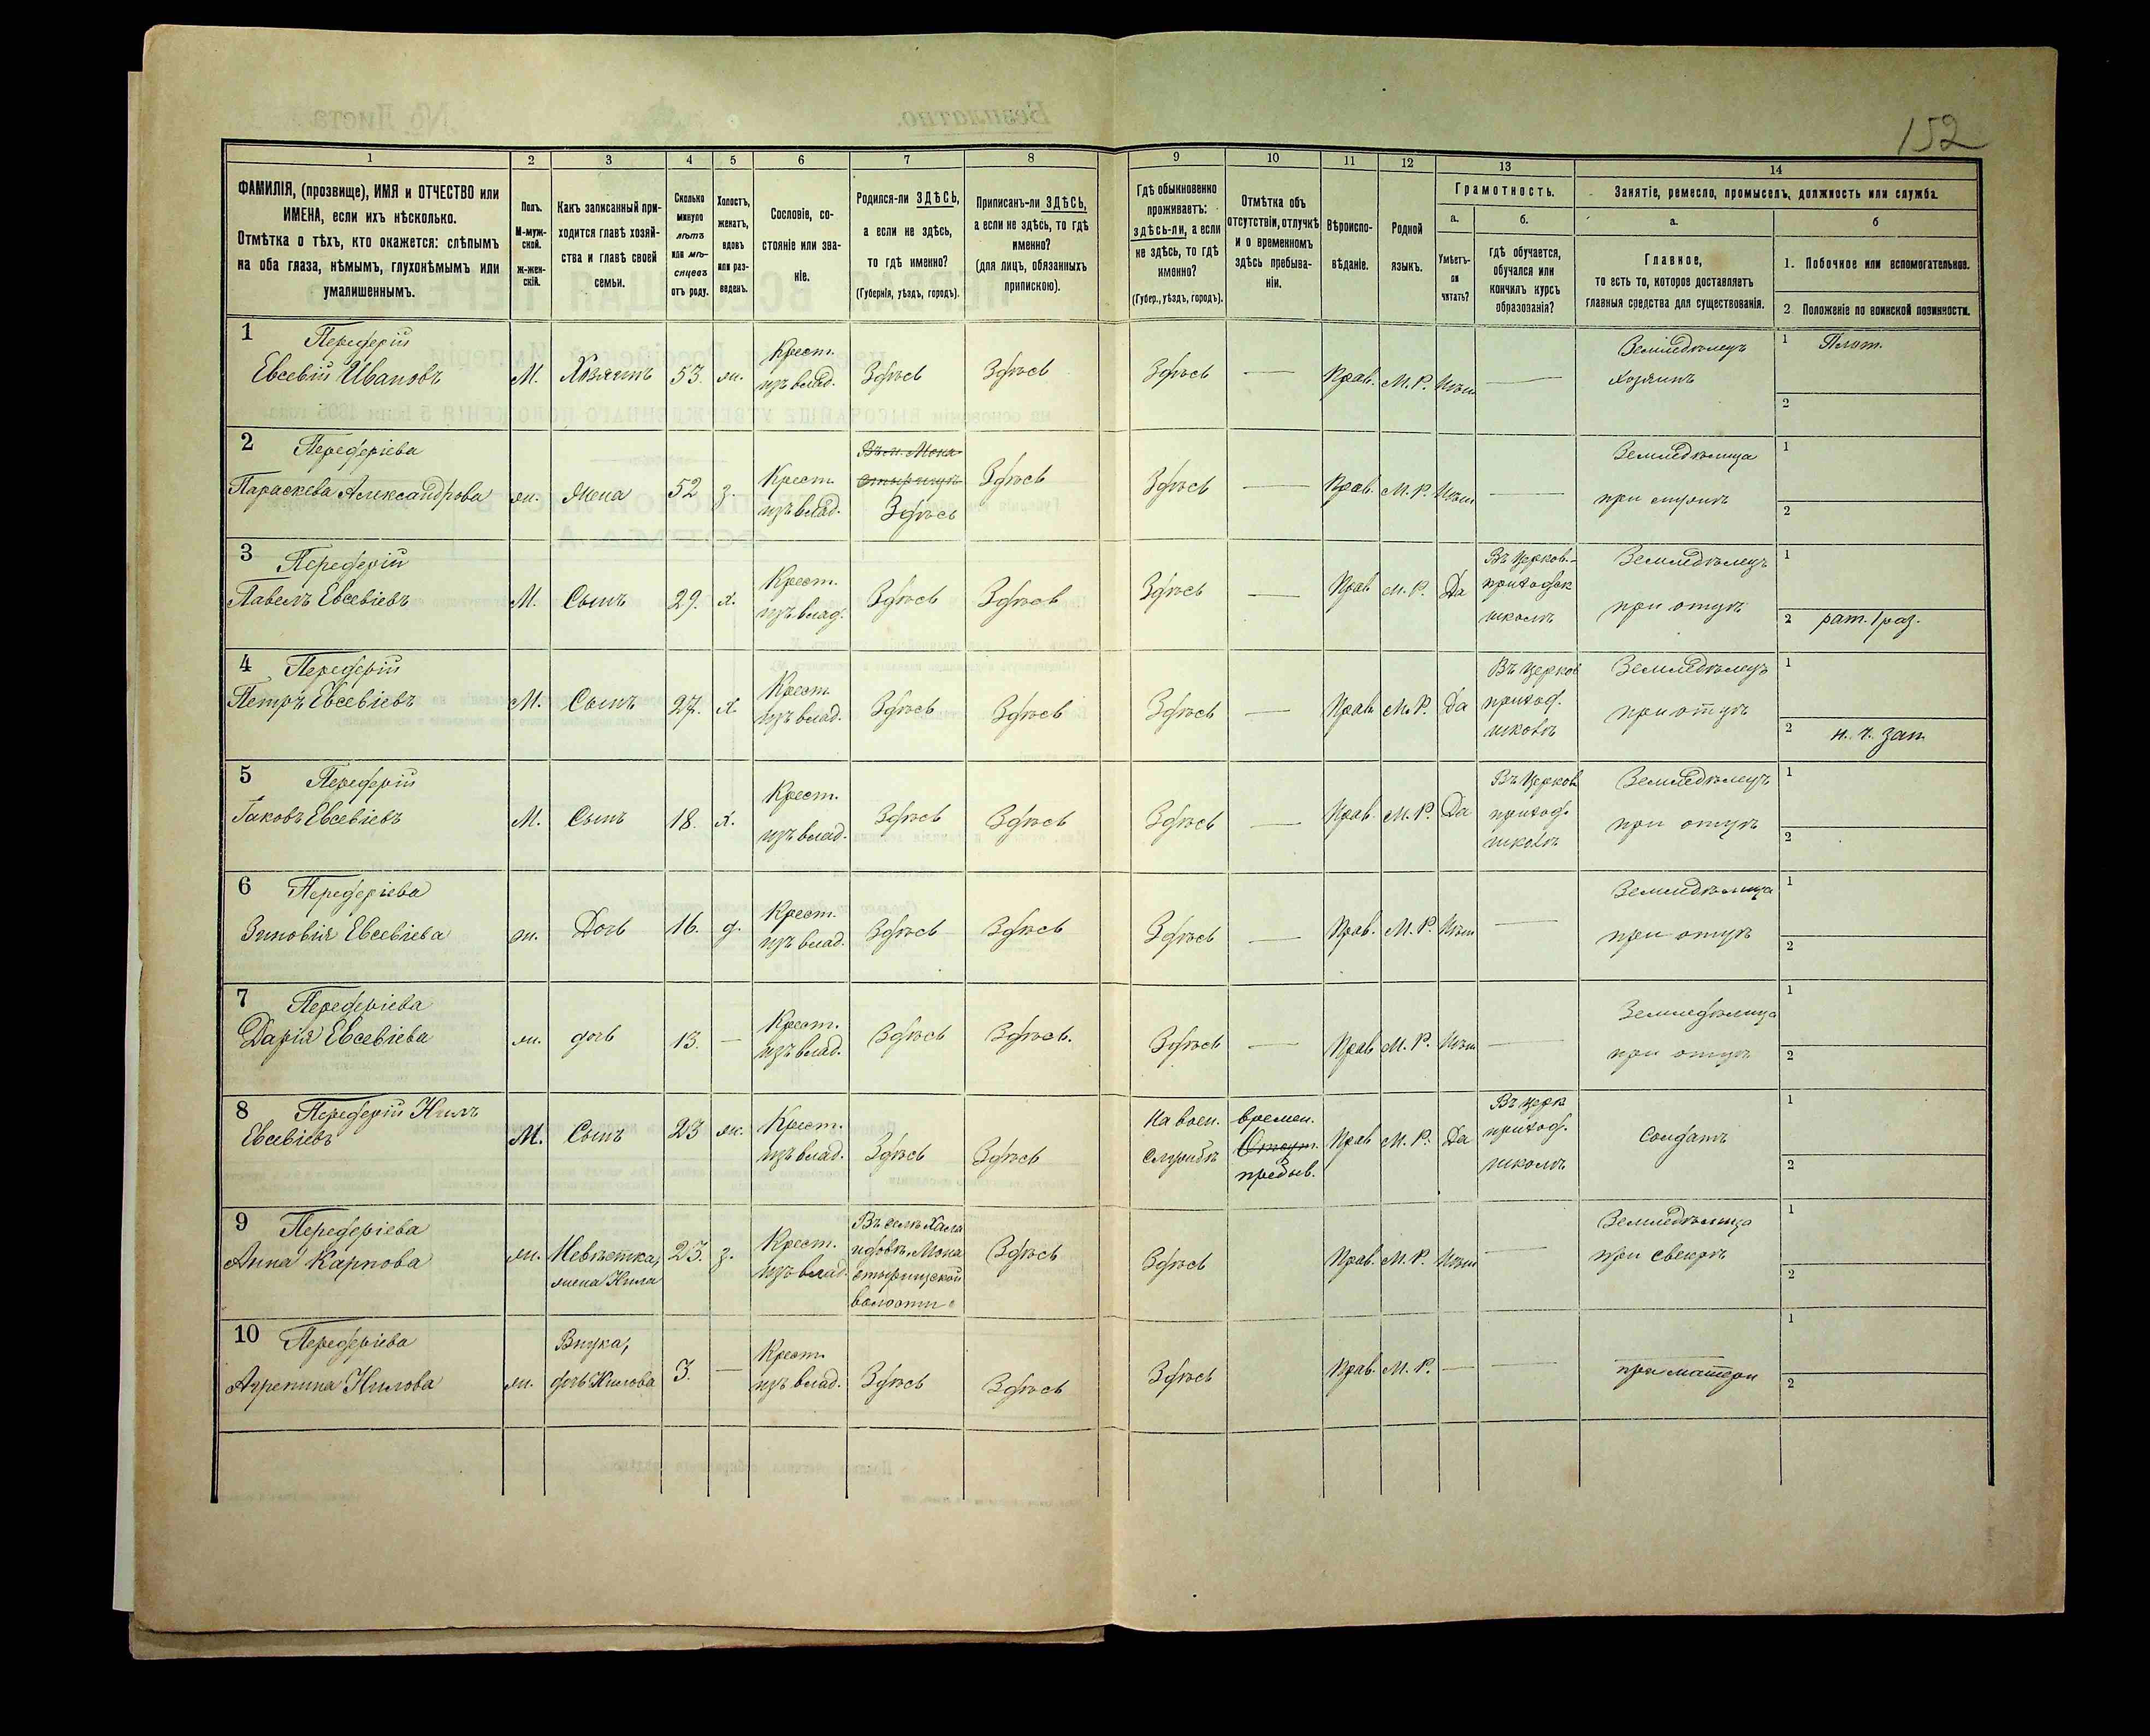 152
1 2 3 4 5 6 7 8 9 10 11 12 13 14
ФАМИЛІЯ, (прозвище), ИМЯ и ОТЧЕСТВО или
ИМЕНА, если ихъ нѣсколько.
Отмѣтка о тѣхъ, кто окажется: слѣпымъ
на оба глаза, нѣмымъ, глухонѣмымъ или
умалишеннымъ.
Полъ.
М-муж-
ской.
ж-жен-
скій.
Какъ записанный при-
ходится главѣ хозяй-
ства и главѣ своей
семьи.
Сколько
минуло
лѣтъ
или мѣ-
сяцевъ
отъ роду.
Холостъ,
женатъ,
вдовъ
или раз-
веденъ.
Сословіе, со-
стояніе или зва-
ніе.
Родился-ли ЗДѢСЬ,
а если не здѣсь,
то гдѣ именно?
(Губернія, уѣздъ, городъ).
Приписанъ-ли ЗДѢСЬ,
а если не здѣсь, то гдѣ
именно?
(для лицъ, обязанныхъ
припискою).
Гдѣ обыкновенно
проживаетъ:
здѣсь-ли, а если
не здѣсь, то гдѣ
именно?
(Губер., уѣздъ, городъ).
Отмѣтка объ
отсутствіи, отлучкѣ
и о временномъ
здѣсь пребыва-
ніи.
Вѣроиспо-
вѣданіе.
Родной
языкъ.
Грамотность.
а.
Умѣетъ-
ли
читать?
б.
гдѣ обучается,
обучался или
кончилъ курсъ
образованія?
Занятіе, ремесло, промыселъ, должность или служба.
а.
Главное,
то есть то, которое доставляетъ
главныя средства для существованія.
б
1. Побочное или вспомогательное.
2. Положеніе по воинской повинности.
1 Передерій
Евсевій Ивановъ
М.
Хозяинъ
53.
ж.
Крест.
изъ влад.
Здѣсь
Здѣсь
Здѣсь
—
Прав.
М. Р.
Нѣт
—
Земледѣлецъ
хозяинъ
1 Плот.
2
2 Передеріева
Параскева Александрова
ж.
Жена
52
з.
Крест.
изъ влад.
Здѣсь
Здѣсь
Здѣсь
—
Прав.
М. Р.
Нѣт
—
Земледѣлица
при мужѣ
1
2
3 Передерій
Павелъ Евсевіевъ
М.
Сынъ
29.
х.
Крест.
изъ влад.
Здѣсь
Здѣсь
Здѣсь
—
Прав
М. Р.
Да
Въ Церков.-
приходск
школѣ
Земледѣлецъ
при отцѣ
1
2 рат. 1 раз.
4 Передерій
Петръ Евсевіевъ
М.
Сынъ
27.
х.
Крест.
изъ влад.
Здѣсь
Здѣсь
Здѣсь
—
Прав
М. Р.
Да
Въ Церков
приход.
школѣ
Земледѣлецъ
при отцѣ
1
2 н. ч. зап.
5 Передерій
Іаковъ Евсевіевъ
М.
Сынъ
18.
х.
Крест.
изъ влад.
Здѣсь
Здѣсь
Здѣсь
—
Прав.
М. Р.
Да
Въ Церков
приход.
школѣ
Земледѣлецъ
при отцѣ
1
2
6 Передеріева
Зиновія Евсевіева
ж.
Дочь
16.
д.
Крест.
изъ влад.
Здѣсь
Здѣсь
Здѣсь
—
Прав.
М. Р.
Нѣт
—
Земледѣлица
при отцѣ
1
2
7 Передеріева
Дарія Евсевіева
ж.
дочь
13.
—
Крест.
изъ влад.
Здѣсь
Здѣсь.
Здѣсь
—
Прав
М. Р.
Нѣт
—
Земледѣлица
при отцѣ
1
2
8 Передерій Нилъ
Евсевіевъ
М.
Сынъ
23
ж.
Крест.
изъ влад.
Здѣсь
Здѣсь
На воен.
службѣ
времен.
Отсут.
пребыв.
Прав
М. Р.
Да
Въ церк
приход.
школѣ
Солдатъ
1
2
9 Передеріева
Анна Карпова
ж.
Невѣстка,
жена Нила
23.
з.
Крест.
изъ влад.
Въ селѣ
Мона
стырищской
волости
Здѣсь
Здѣсь
Прав.
М. Р.
Нѣт
—
Земледѣлица
при свекрѣ
1
2
10 Передеріева
Агрепина Нилова
ж.
Внука,
дочь Нилова
3.
—
Крест.
изъ влад.
Здѣсь
Здѣсь
Здѣсь
Прав.
М. Р.
—
—
при матери
1
2